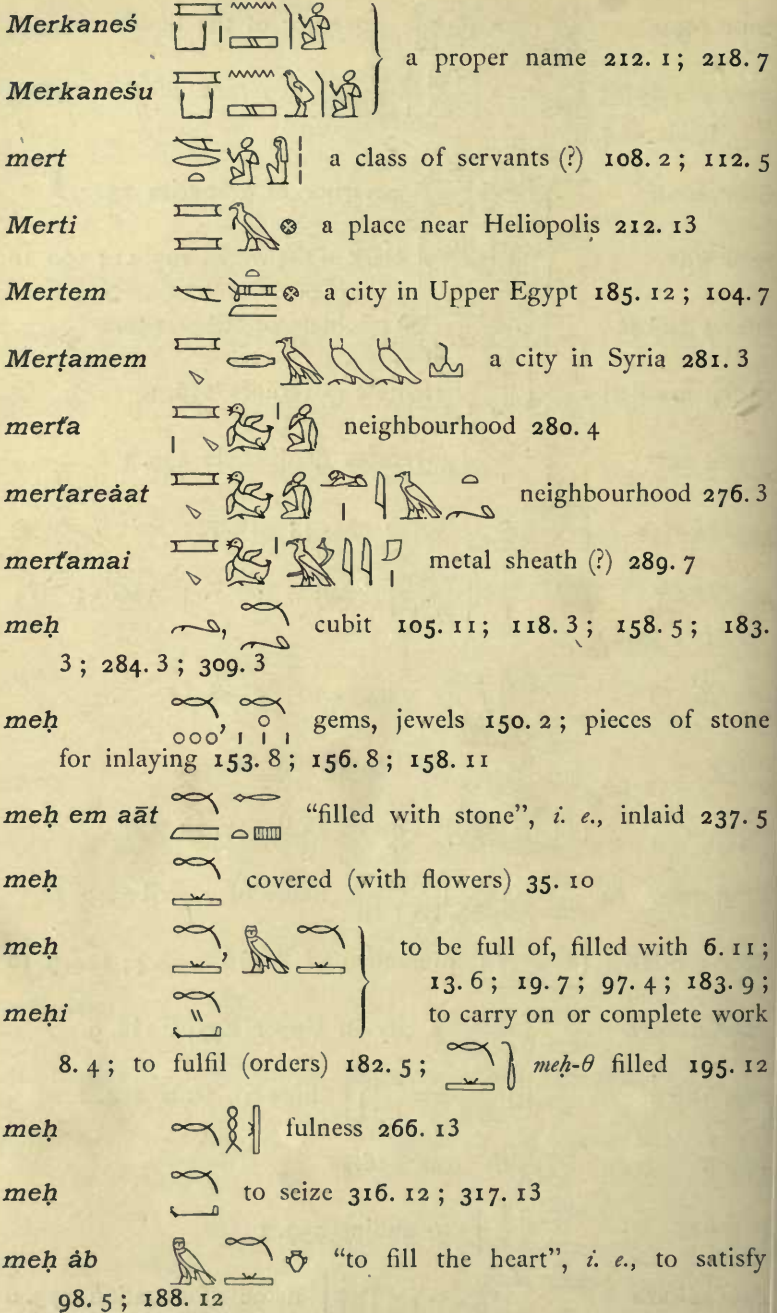 Merkaneś
a proper name 212. 1; 218. 7
Merkaneśu
mert a class of servants (?) 108. 2; 112. 5
Merti a place near Heliopolis 212. 13
Mertem a city in Upper Egypt 185. 12; 104. 7
Merṭamem a city in Syria 281. 3
mert'a neighbourhood 280. 4
mert'areȧat neighbourhood 276. 3
mert'amai metal sheath (?) 289. 7
meḥ , cubit 105. 11; 118. 3; 158. 5; 183.
3; 284. 3; 309. 3
meḥ , gems, jewels 150. 2; pieces of stone
for inlaying 153. 8; 156. 8; 158. 11
meḥ em aāt “filled with stone”, i. e., inlaid 237. 5
meḥ covered (with flowers) 35. 10
meḥ , to be full of, filled with 6. 11;
13. 6; 19. 7; 97. 4; 183. 9;
meḥi to carry on or complete work
8. 4; to fulfil (orders) 182. 5; meḥ-θ filled 195. 12
meḥ fulness 266. 13
meḥ to seize 316. 12; 317. 13
meḥ ȧb “to fill the heart”, i. e., to satisfy
98. 5; 188. 12